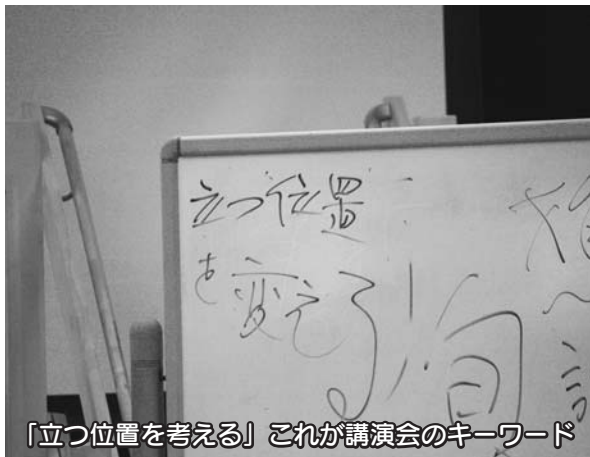 立つ位置
を変える
「立つ位置を考える」これが講演会のキーワード